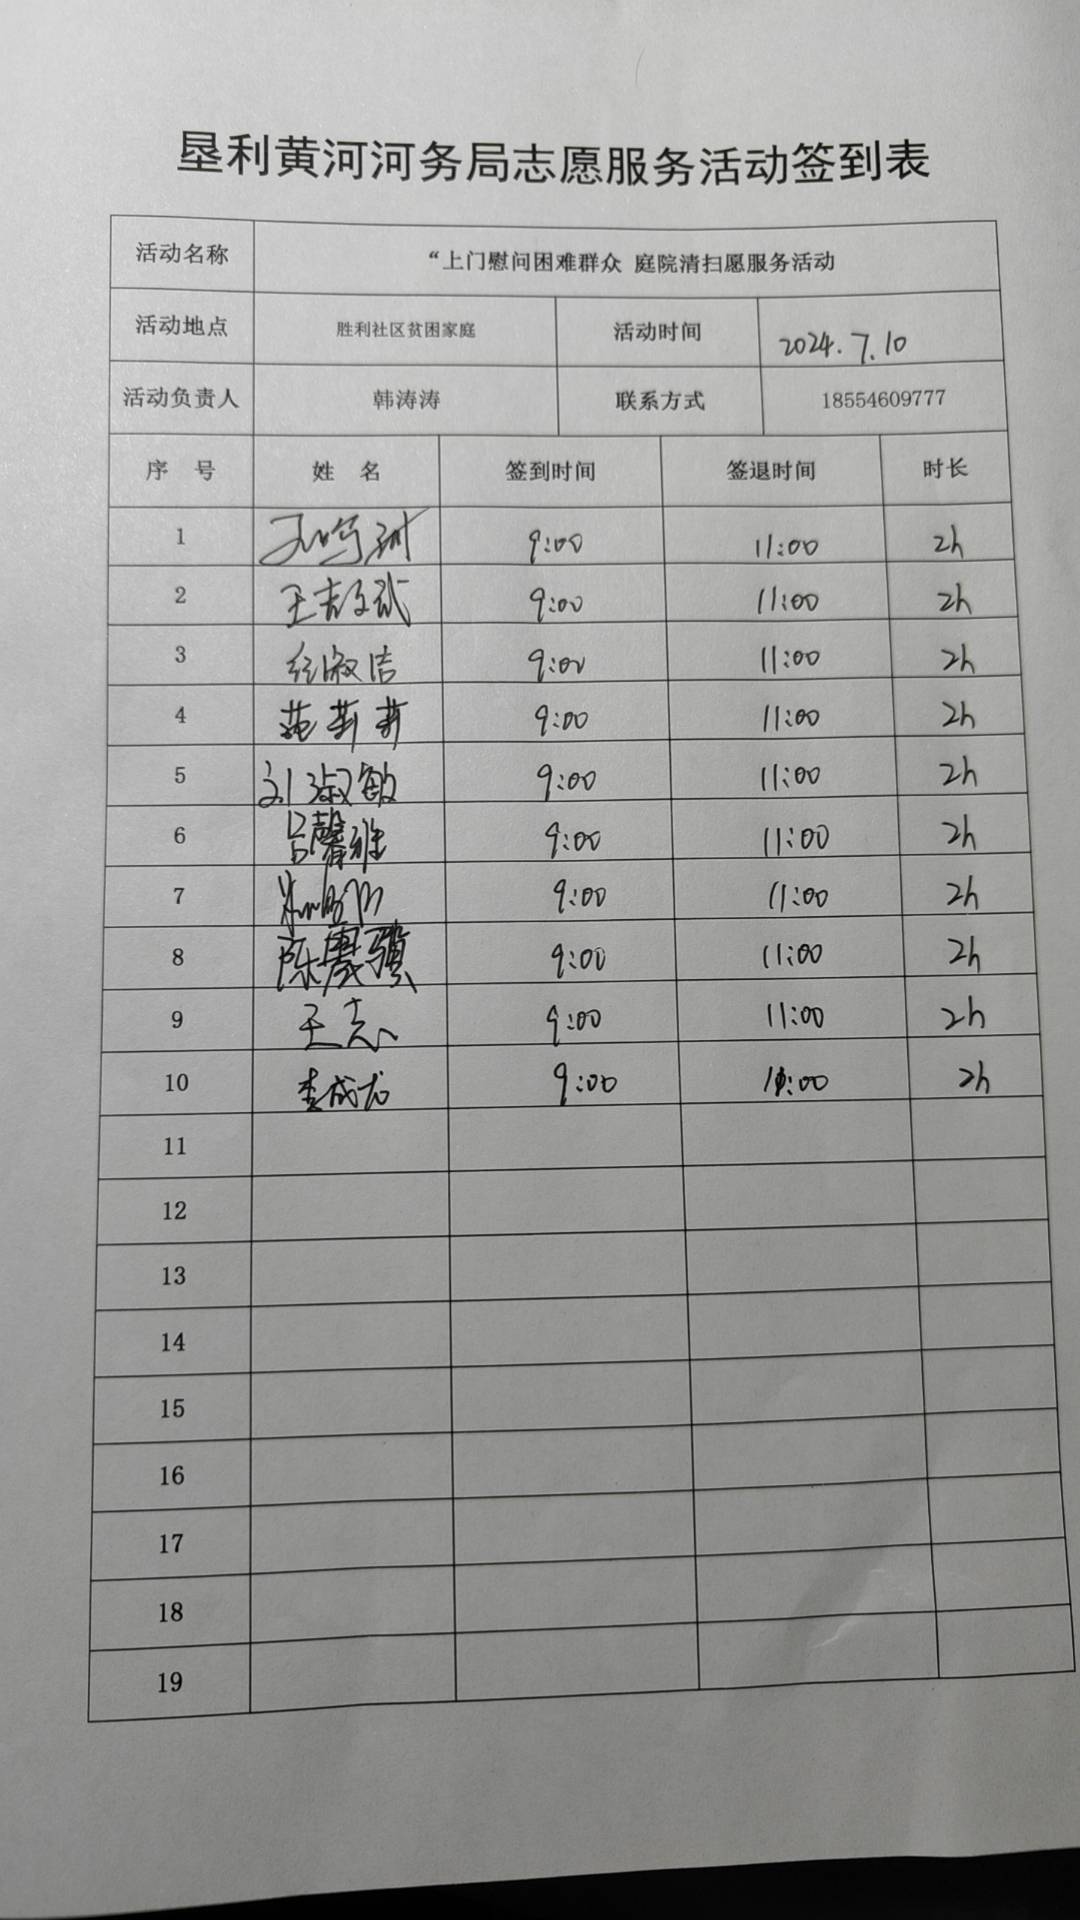 垦利黄河河务局志愿服务活动签到表
活动名称 “上门慰问困难群众 庭院清扫愿服务活动
活动地点 胜利社区贫困家庭 活动时间 2024.7.10
活动负责人 韩涛涛 联系方式 18554609777
序 号 姓 名 签到时间 签退时间 时长
1 9:00 11:00 2h
2 9:00 11:00 2h
3 9:00 11:00 2h
4 范莉莉 9:00 11:00 2h
5 刘淑敏 9:00 11:00 2h
6 吕馨雅 9:00 11:00 2h
7 9:00 11:00 2h
8 9:00 11:00 2h
9 王志 9:00 11:00 2h
10 李成龙 9:00 11:00 2h
11
12
13
14
15
16
17
18
19